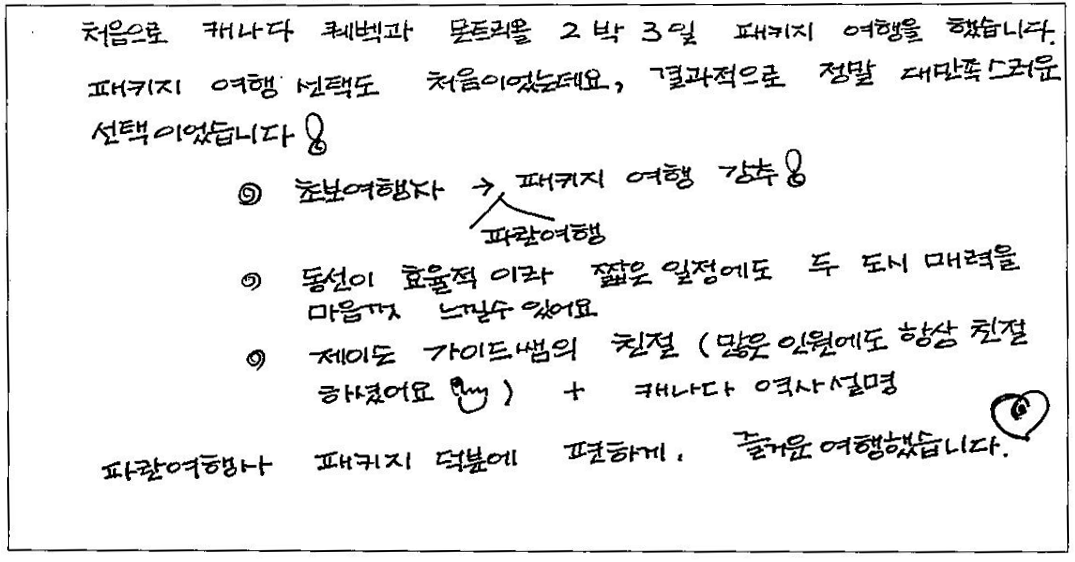 처음으로 캐나다 퀘벡과 몬트리올 2박 3일 패키지 여행을 했습니다.
패키지 여행 선택도 처음이었는데요, 결과적으로 정말 대만족스러운
선택이었습니다!
◎ 초보여행자 → 패키지 여행 강추!
파란여행
◎ 동선이 효율적 이라 짧은 일정에도 두 도시 매력을
마음껏 느낄수 있어요
◎ 제이든 가이드쌤의 친절 (많은 인원에도 항상 친절
하셨어요 ) + 캐나다 역사설명
파란여행사 패키지 덕분에 편하게. 즐거운 여행했습니다.